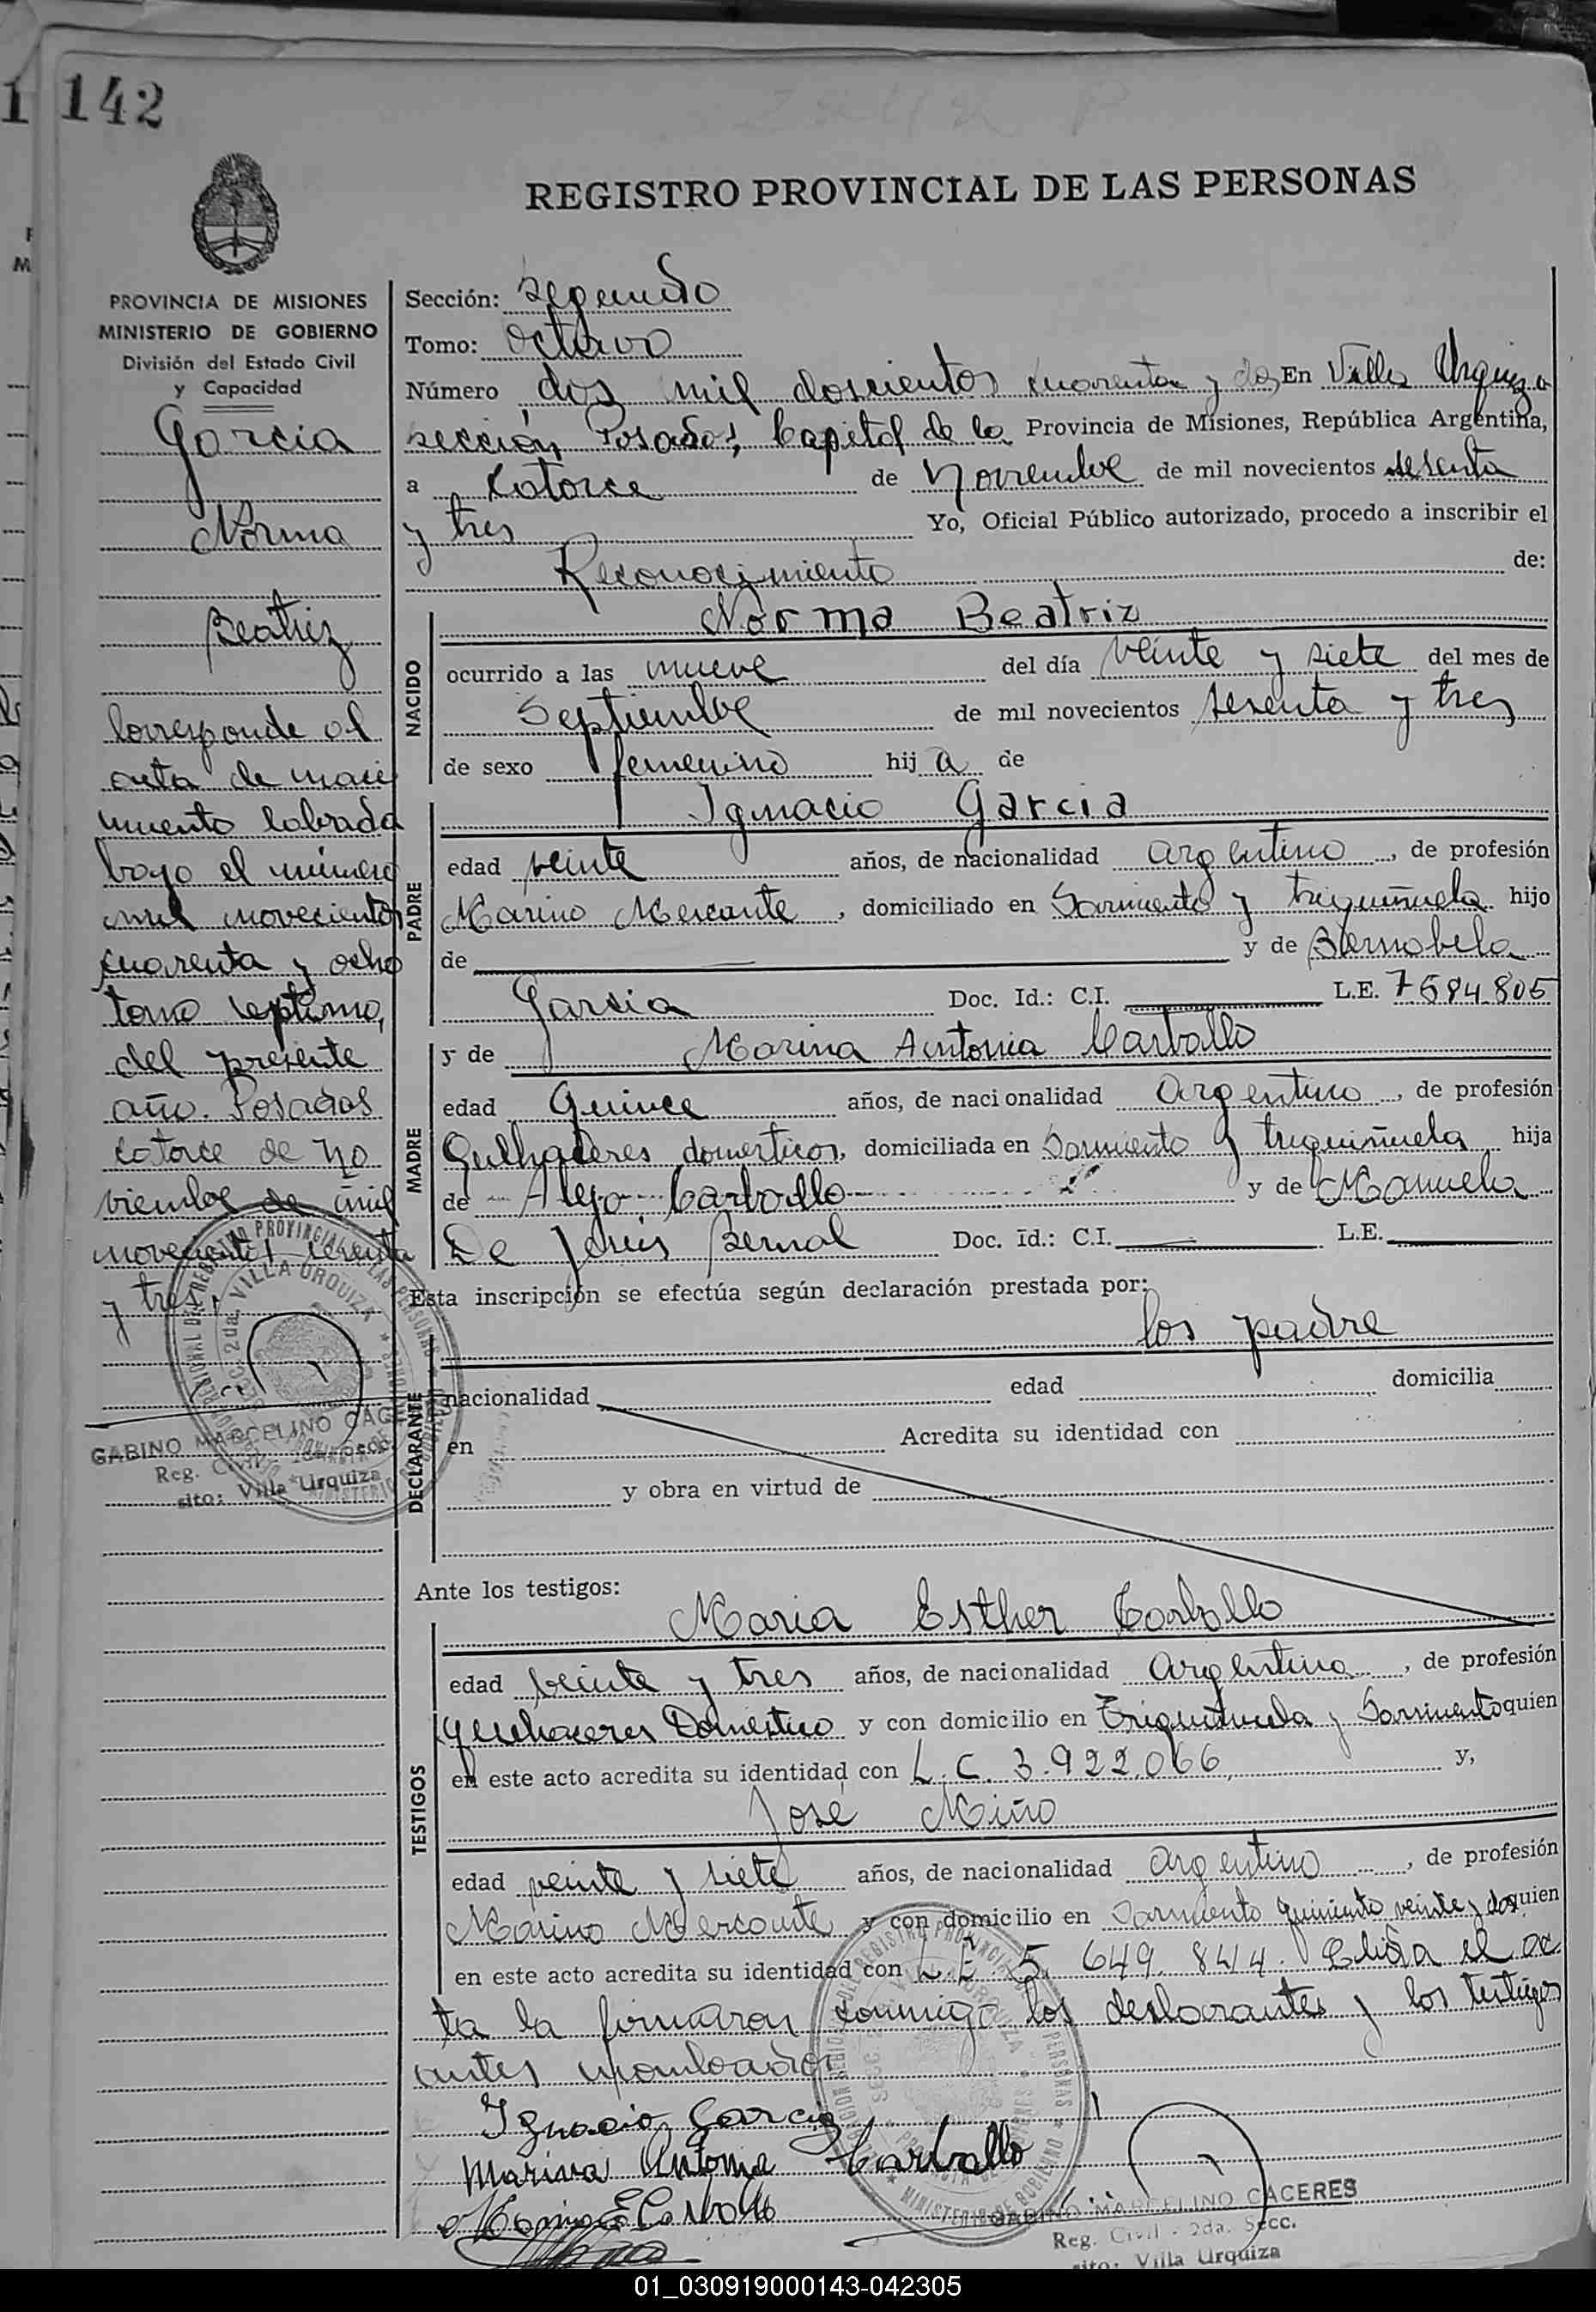 142
REGISTRO PROVINCIAL DE LAS PERSONAS
PROVINCIA DE MISIONES
MINISTERIO DE GOBIERNO
División del Estado Civil
y Capacidad
Garcia
Norma
Beatriz
Corresponde al
acta de naci
miento labrada
bajo el número
mil novecientos
cuarenta y ocho
tomo septimo,
del presente
año. Posadas
catorce de No
viembre de mil
novecientos sesenta
y tres.
GABINO MARCELINO CACERES
Reg. Civil - 2da. Secc.
sito: Villa Urquiza
Sección: segundo
Tomo: octavo
Número dos mil doscientos cuarenta y dos En Villa Urquiza
sección Posadas, Capital de la Provincia de Misiones, República Argentina,
a catorce de Noviembre de mil novecientos sesenta
y tres Yo, Oficial Público autorizado, procedo a inscribir el
Reconocimiento de:
NACIDO
Norma Beatriz
ocurrido a las nueve del día veinte y siete del mes de
Septiembre de mil novecientos sesenta y tres
de sexo femenino hij a de
PADRE
Ignacio Garcia
edad veinte años, de nacionalidad argentino, de profesión
Marino Mercante, domiciliado en Sarmiento y triguiñuela hijo
de y de Bernobela
Garcia Doc. Id.: C.I. L.E. 7594805
MADRE
y de Marina Antonia Carballo
edad Quince años, de nacionalidad argentino, de profesión
Quehaceres domesticos, domiciliada en Sarmiento y triguiñuela hija
de Alejo Carballo y de Manuela
De Jesús Bernal Doc. id.: C.I. L.E.
Esta inscripción se efectúa según declaración prestada por:
los padre
DECLARANTE
nacionalidad edad domicilia
en Acredita su identidad con
y obra en virtud de
Ante los testigos:
TESTIGOS
Maria Esther Carballo
edad veinte y tres años, de nacionalidad argentina, de profesión
quehaceres Domestico y con domicilio en Triguiñuela y Sarmiento quien
en este acto acredita su identidad con L.C. 3.922.066, y,
José Miño
edad veinte y siete años, de nacionalidad argentino, de profesión
Marino Mercante y con domicilio en Sarmiento quiniento veinte y dos quien
en este acto acredita su identidad con L.E 5.649.844. el ac
ta la firmaron conmigo los declarantes y los testigos
antes nombrados
Ignacio Garcia
Marina Antonia Carballo
Maria E Carballo
GABINO MARCELINO CACERES
Reg. Civil - 2da. Secc.
sito: Villa Urquiza
01_030919000143-042305